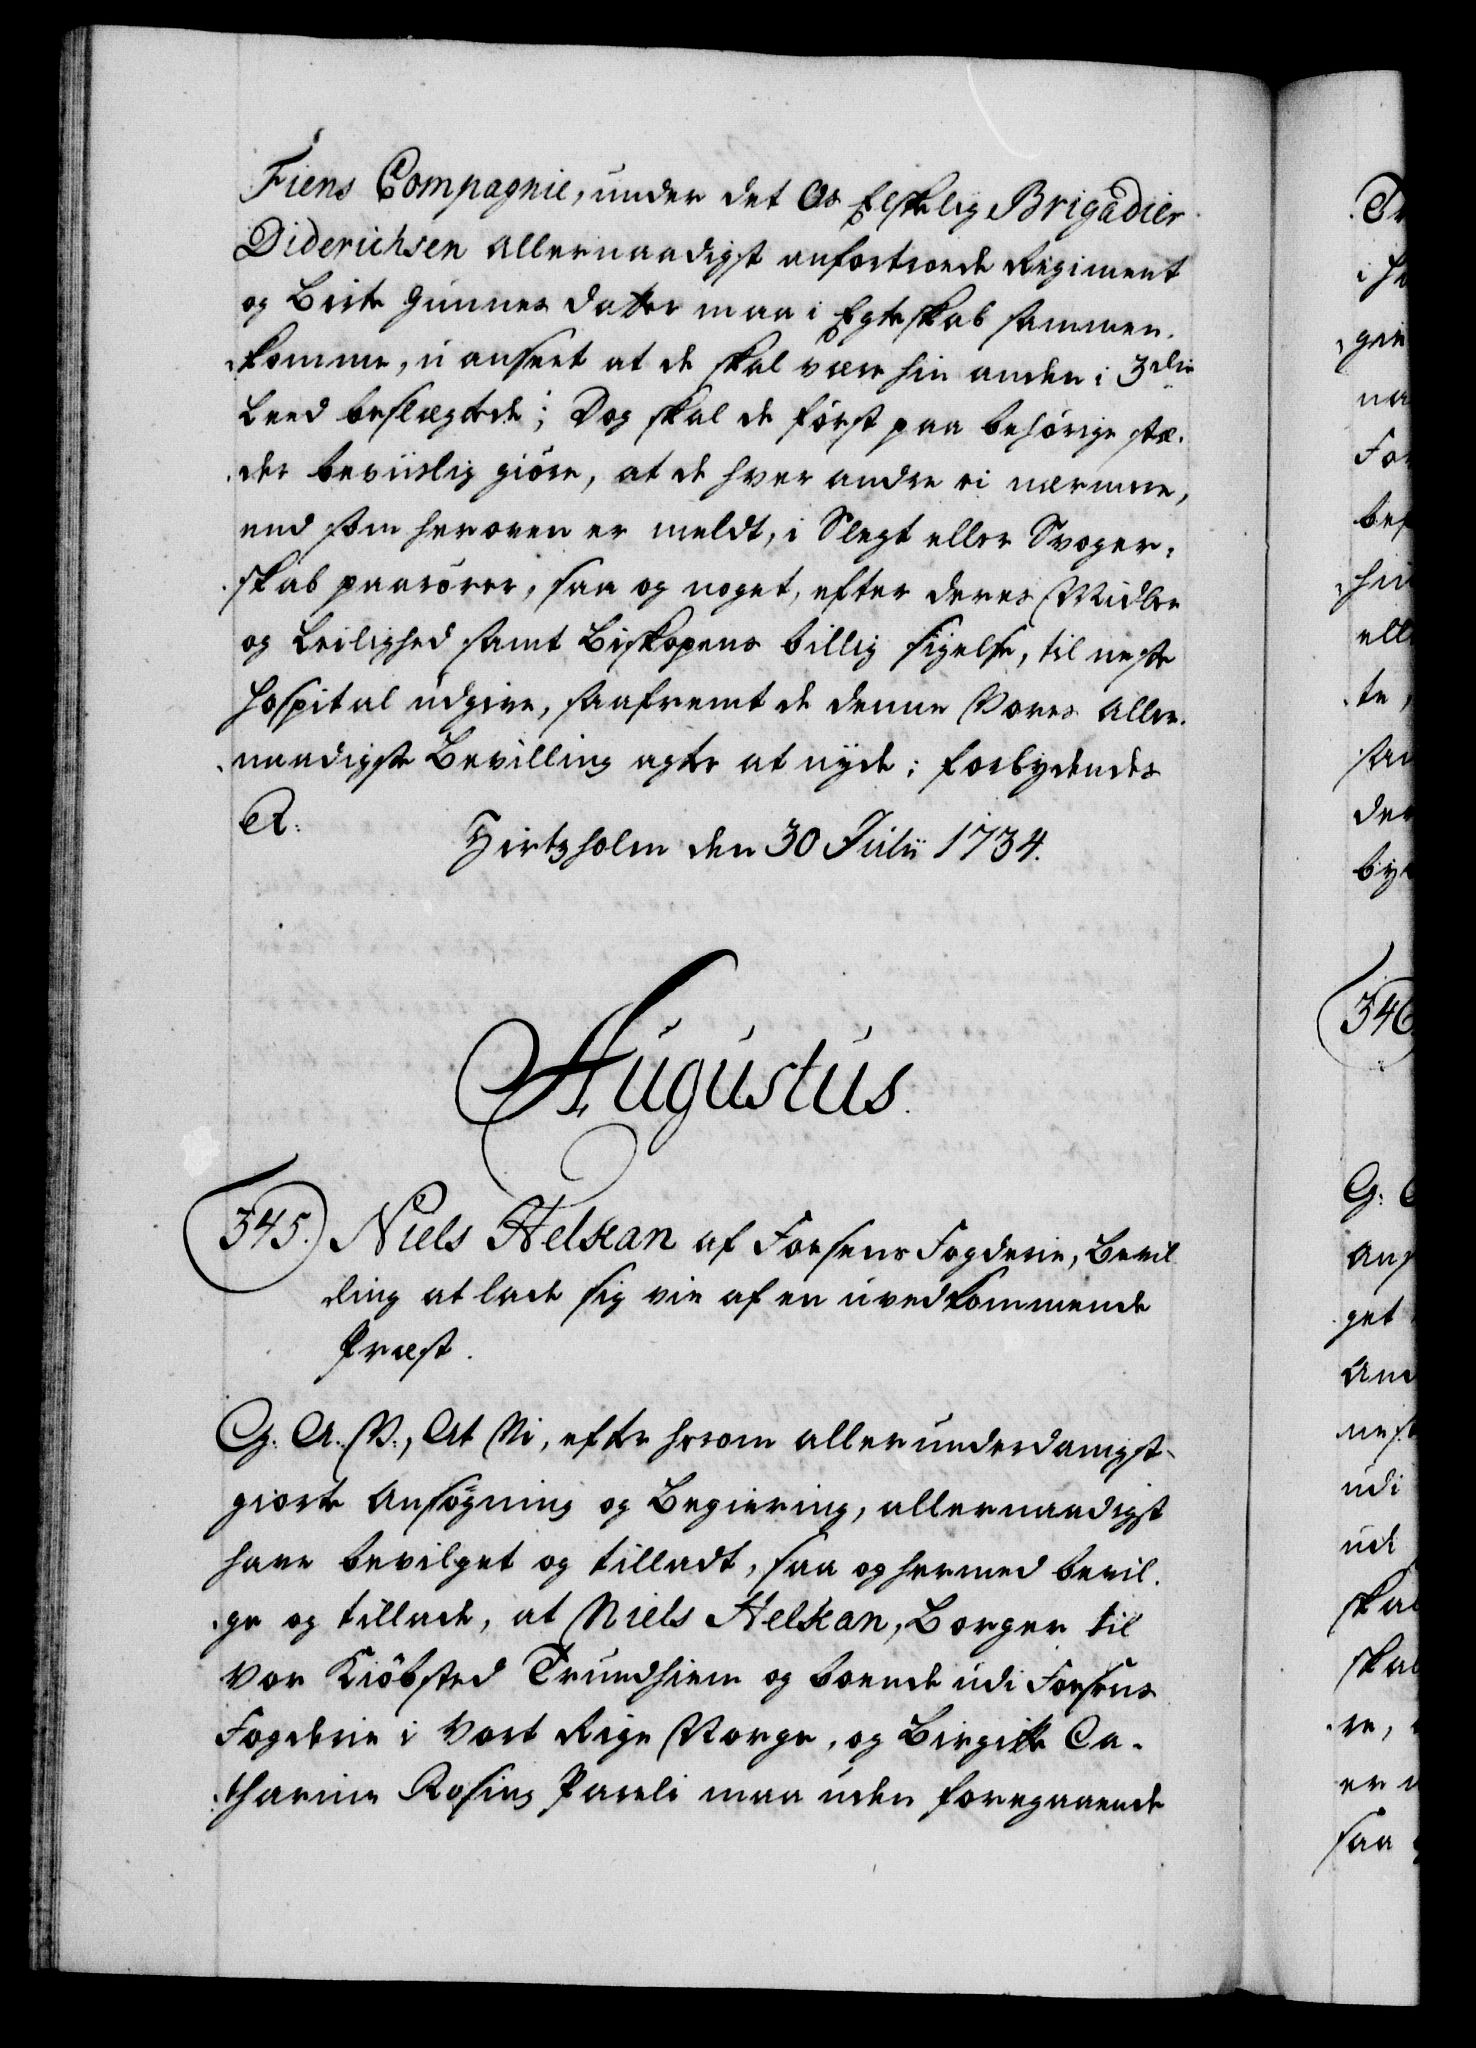 Fiens Compagnie, under det Os Elskelig Brigadier
Diderichsen allernaadigst anfortroede Regiment
og Birte Gunnes datter maa i Egteskab sammen-
komme, uanseet at de skal være hin anden i 3die
Leed beslægtede; Dog skal de först paa behörige stæ-
der beviislig giöre, at de hver andre ei nærmere,
end som heroven er meldt, i Slegt eller Svoger-
skab paarörer, saa og noget, efter deres Midler
og Leilighed samt Biskopens billig sigelse, til neste
Hospital udgive, saafremt de denne Vores Aller-
naadigste Bevilling agter at nyde; forbydendes
A:
Hirtzholm den 30 Julii 1734.
Augustus.
345. Niels Helkan af Fosens Fogderie, Bevil
ling at lade sig vie af en uvedkommende
Præst.
G: A: V:, At Vi, efter herom allerunderdanigst-
giorte Ansögning og Begiering, allernaadigst
have bevilget og tilladt, saa og hermed bevil-
ge og tillade, at Niels Helkan, Borger til
Vor Kiöbsted Trundhiem og boende udi Fosens
Fogderie i Vort Rige Norge, og Birgitte Ca-
tharine Rosing Pareli maa uden foregaaende
Tr
i He
gie
na
For
bes
hin
elle
te,
saa
der
by
346.
G:
Ans
get
And
nest
udi
udi
skal
skal
re,
er
saa